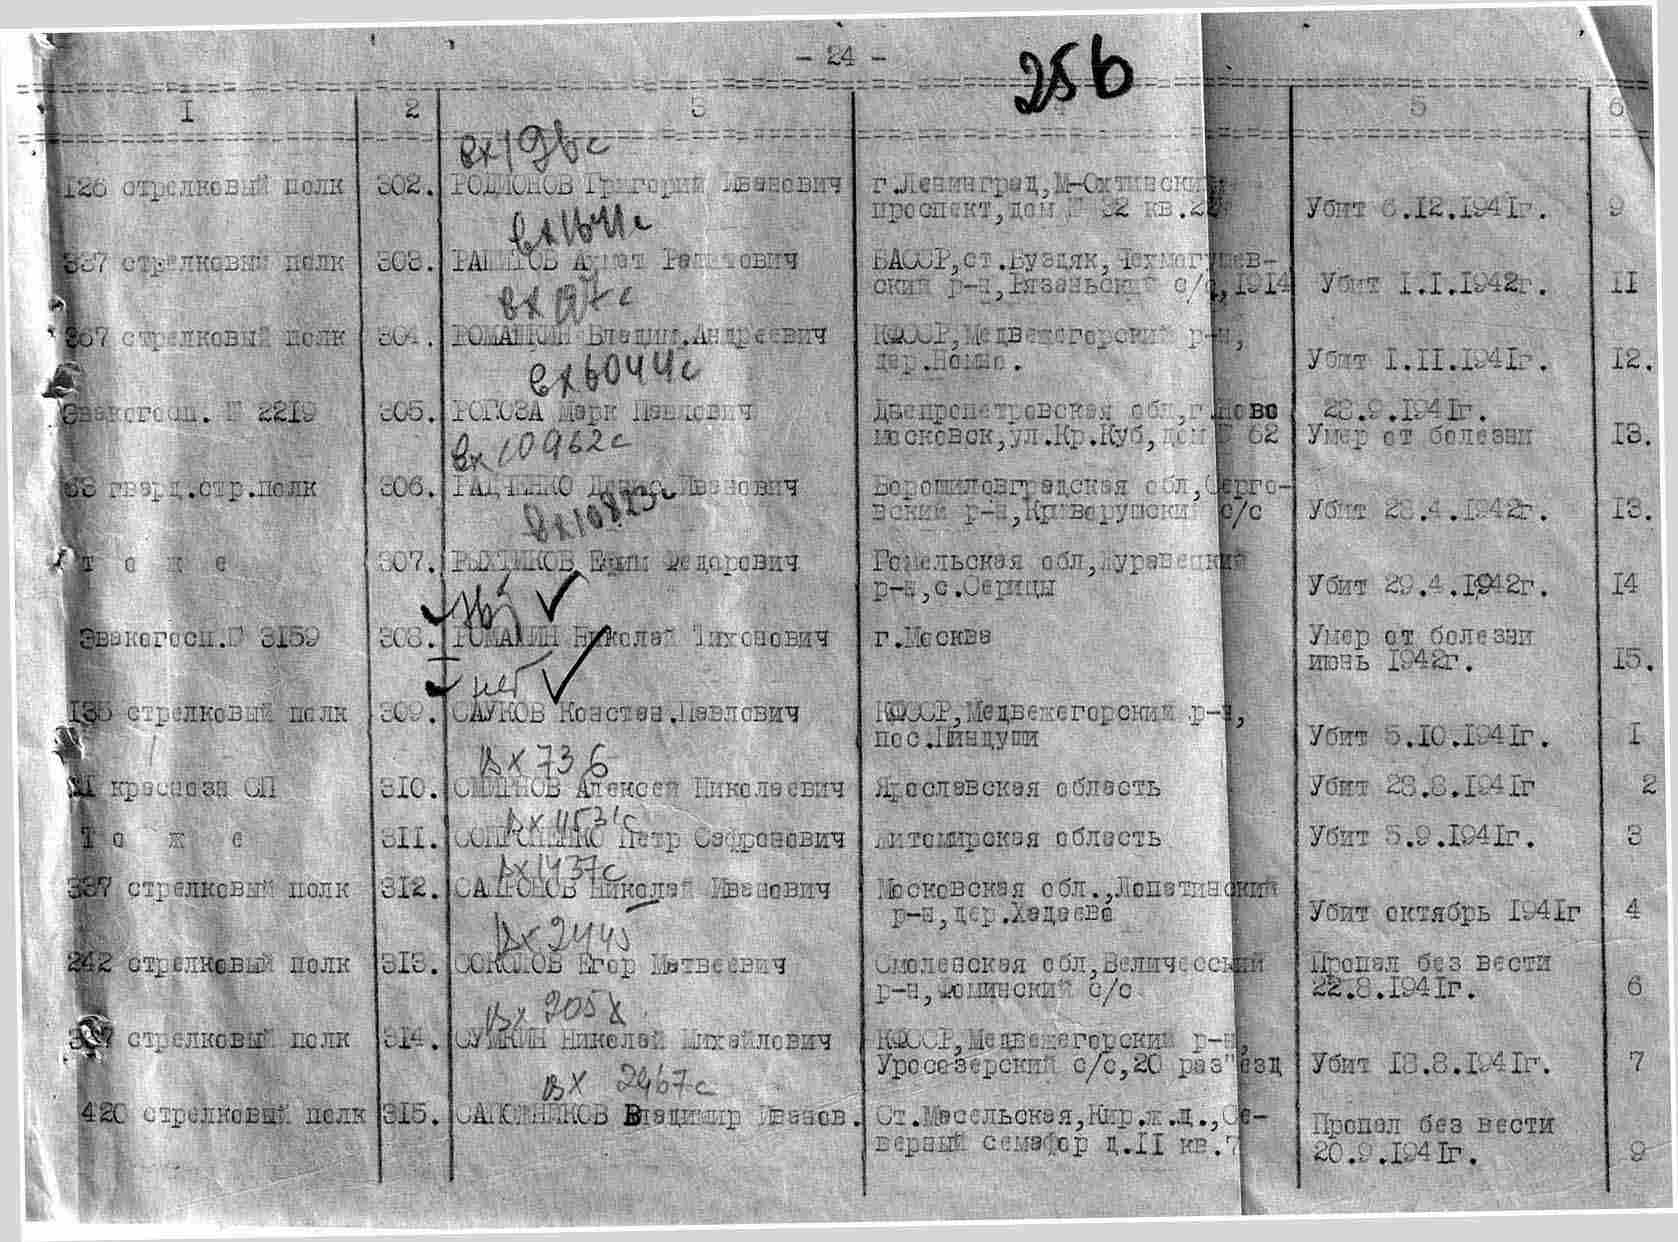 - 24 -
256
I 2 3 5 6
вх196с
126 стрелковый полк 302. РОДИОНОВ Григорий Иванович г.Ленинград,М-Охтинский
проспект,дом № 32 кв.22 Убит 6.12.1941г. 9
вх1611с
337 стрелковый полк 303. РАШИТОВ Ахмет БАССР,ст.Буздяк,
ский р-н,Рязаньский с/с,1914 Убит I.I.1942г. II
вх197с
367 стрелковый полк 304. РОМАШКИН Владим.Андреевич КФССР,Медвежегорский р-н,
дер. Убит I.II.1941г. 12.
вх6044с
Эвакогосп.№ 2219 305. РОГОЗА Марк Павлович Днепропетровская обл,г.Ново 28.9.1941г.
московск,ул.Кр.Куб,дом № 62 Умер от болезни 13.
вх10962с
63 гвард.стр.полк 306. РАДЧЕНКО Денис Иванович Ворошиловградская обл,Серго-
вский р-н,Криворушский с/с Убит 28.4.1942г. 13.
вх10823с
т о ж е 307. Ефим Федорович Гомельская обл,Журавецкий
р-н,с.Серицы Убит 29.4.1942г. 14
Эвакогосп.№ 3159 308. РОМАНИН Николай Тихонович г.Москва Умер от болезни
июнь 1942г. 15.
нет
135 стрелковый полк 309. САУКОВ Констан.Павлович КФССР,Медвежегорский р-н,
пос.Пиндуши Убит 5.10.1941г. I
вх736
краснозн СП 310. СМИРНОВ Алексей Николаевич Ярославская область Убит 28.8.1941г 2
вх11531с
Т о ж е 311. Петр Сафронович Житомирская область Убит 5.9.1941г. 3
вх1437с
337 стрелковый полк 312. САПРОНОВ Николай Иванович Московская обл.,Лопатинский
р-н,дер.Хадаево Убит октябрь 1941г 4
вх2445
242 стрелковый полк 313. СОКОЛОВ Егор Матвеевич Смоленская обл, Пропал без вести
р-н,Фоминский с/с 22.8.1941г. 6
вх
стрелковый полк 314. СУМКИН Николай Михайлович КФССР,Медвежегорский р-н,
Уросозерский с/с,20 раз"езд Убит 18.8.1941г. 7
вх 2467с
420 стрелковый полк 315. САПОЖНИКОВ Владимир Иванов. Ст.Масельская,Кир.ж.д.,Се- Пропал без вести
верный семафор д.II кв.7 20.9.1941г. 9